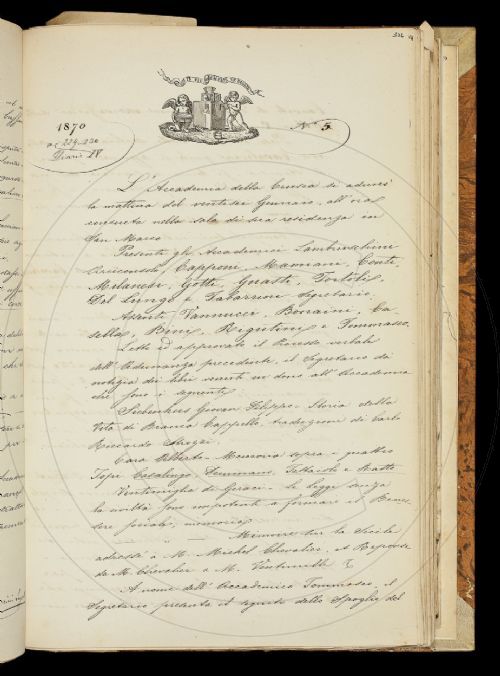 322
1870
a c. 229-230
Diario IV.
N.° 5.
L'Accademia della Crusca si adunò
la mattina del ventisei Gennaio, all'ora
consueta nella sala di sua residenza in
San Marco.
Presenti gli Accademici Lambruschini
Arciconsolo, Capponi, Mamiani, Conti,
Milanesi, Gotti, Guasti, Tortoli,
Del Lungo e Tabarrini segretario.
Assenti Vannucci, Bonaini, Ca-
sella, Bini, Rigutini e Tommaseo.
Letto ed approvato il Processo verbale
dell'Adunanza precedente, il Segretario dà
notizia dei libri venuti in dono all'Accademia
che sono i seguenti
Siebenkees Giovan Filippo - Storia della
Vita di Bianca Cappello, traduzione di Carlo
Riccardo Strozzi.
Cara Alberto - Memoria sopra i quattro
Topi Casalingo,
Ventimiglia di Geraci - Le leggi senza
la civiltà sono impotenti a formare il Benes-
sere sociale, memoria
Memoire sur la Sicile
adressée à M. Michel Chevalier, et Réponse
de M. Chevalier à M.
A nome dell'Accademico Tommaseo, il
Segretario presenta il seguito dello Spoglio del